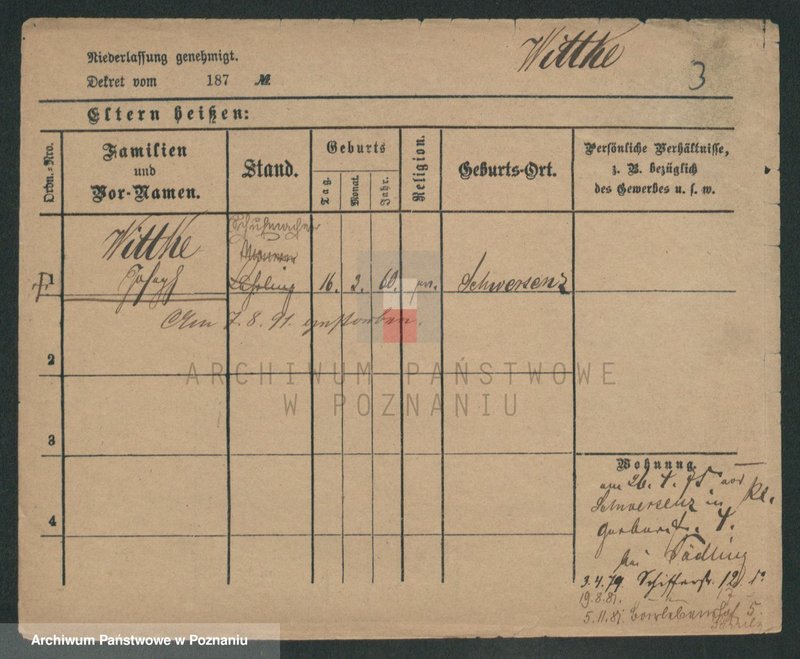 Niederlassung genehmigt.
Wittke
3
Dekret vom 187 №
Eltern heißen:
Ordn.-Nro.
Familien
und
Vor-Namen.
Stand.
Geburts
Tag.
Monat.
Jahr.
Religion.
Geburts-Ort.
Persönliche Verhältnisse,
z. B. bezüglich
des Gewerbes u. s. w.
Wittke
Joseph
Schuhmacher
Lehrling
16. 2. 60.
Schwersenz
1
Am 7.8.91 gestorben.
2
ARCHIWUM PAŃSTWOWE
W POZNANIU
3
Wohnung.
am 26. 4. 75 aus
Schwersenz in Kl.
Gerberst. 4.
bei Tädling
3.4.79 Schifferstr. 12
19.8.81.
5.11.81.
4
Archiwum Państwowe w Poznaniu